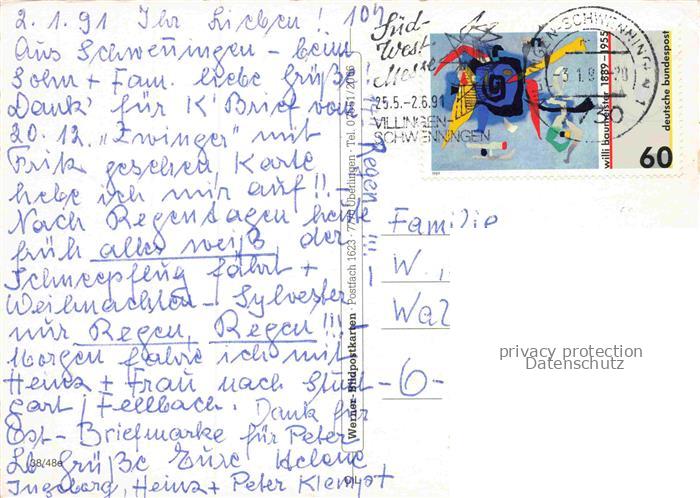 2.1.91 Ihr Lieben! 10h
Aus Schwenningen – beim
Sohn + Fam. liebe Grüße!
Dank' für K'Brief vom
20.12. „Zwinger" mit
geschen, Karte
hebe ich mir auf!! –
Nach Regentagen heute
früh alles weiß, der
Schneepflug fährt +
Weihnachten – Sylvester
nur Regen, Regen!!! –
Morgen fahre ich mit
Heinz + Frau nach Stutt-
gart / Fellbach. Dank für
Ost-Briefmarke für Peter
Lb Grüße Eure Helene
Ingeborg, Heinz + Peter Klempt
Regen!!!
38/48e
Werner-Bildpostkarten · Postfach 1623 · 7770 Überlingen · Tel.
Süd-
West
Messe
25.5.-2.6.91
VILLINGEN-
SCHWENNINGEN
GEN-SCHWENNINGEN 1
-3.1.9
730
willi baumeister 1889-1955
deutsche bundespost
60
1989
Familie
W.
Wal
-6-
privacy protection
Datenschutz